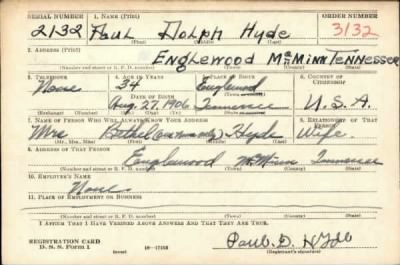 SERIAL NUMBER 1. NAME (Print) ORDER NUMBER
2132 Paul Dolph Hyde 3132
(First) (Middle) (Last)
2. ADDRESS (Print)
Englewood McMinn Tennessee
(Number and street or R. F. D. number) (Town) (County) (State)
3. TELEPHONE 4. AGE IN YEARS 5. PLACE OF BIRTH 6. COUNTRY OF CITIZENSHIP
None 34 Englewood
DATE OF BIRTH
Aug. 27, 1906 Tennessee U.S.A.
7. NAME OF PERSON WHO WILL ALWAYS KNOW YOUR ADDRESS 8. RELATIONSHIP OF THAT PERSON
Mrs Hyde Wife
(Mr., Mrs., Miss) (First) (Middle) (Last)
9. ADDRESS OF THAT PERSON
Englewood McMinn Tennessee
(Number and street or R. F. D. number) (Town) (County) (State)
10. EMPLOYER'S NAME
None
11. PLACE OF EMPLOYMENT OR BUSINESS
(Number and street or R. F. D. number) (Town) (County) (State)
I AFFIRM THAT I HAVE VERIFIED ABOVE ANSWERS AND THAT THEY ARE TRUE.
REGISTRATION CARD
D. S. S. Form 1 (over) 16—17105 Paul D. Hyde
(Registrant's signature)